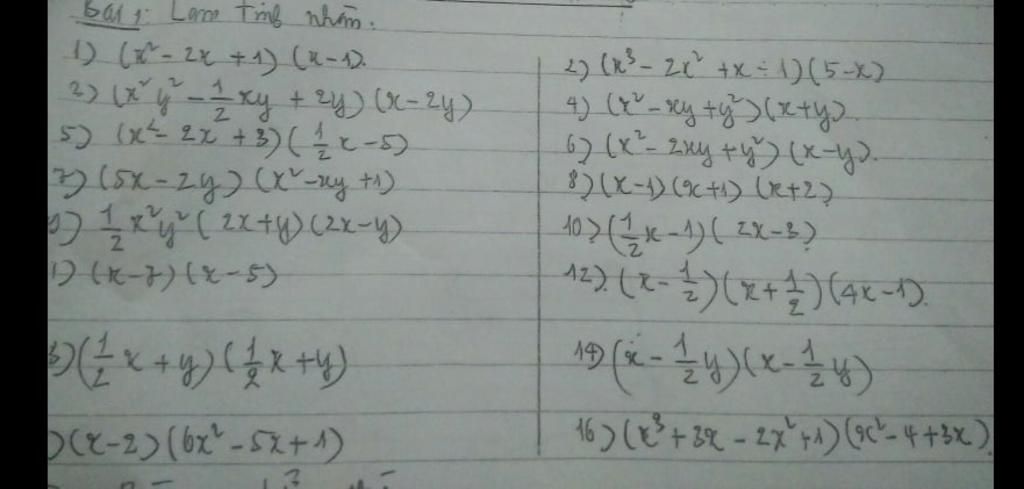 Bài 1: Làm tính nhân.
1) (x² - 2x + 1) (x - 1).
2) (x³ - 2x² + x - 1) (5 - x)
3) (x²y² - 1/2 xy + 2y) (x - 2y)
4) (x² - xy + y²) (x + y).
5) (x² - 2x + 3) (1/2 x - 5)
6) (x² - 2xy + y²) (x - y).
7) (5x - 2y) (x² - xy + 1)
8) (x - 1) (x + 1) (x + 2)
9) 1/2 x²y² (2x + y) (2x - y)
10) (1/2 x - 1) (2x - 3)
1) (x - 7) (x - 5)
12). (x - 1/2) (x + 1/2) (4x - 1).
3) (1/2 x + y) (1/2 x + y)
14) (x - 1/2 y) (x - 1/2 y)
) (x - 2) (6x² - 5x + 1)
16) (x³ + 3x - 2x² + 1) (x² - 4 + 3x).